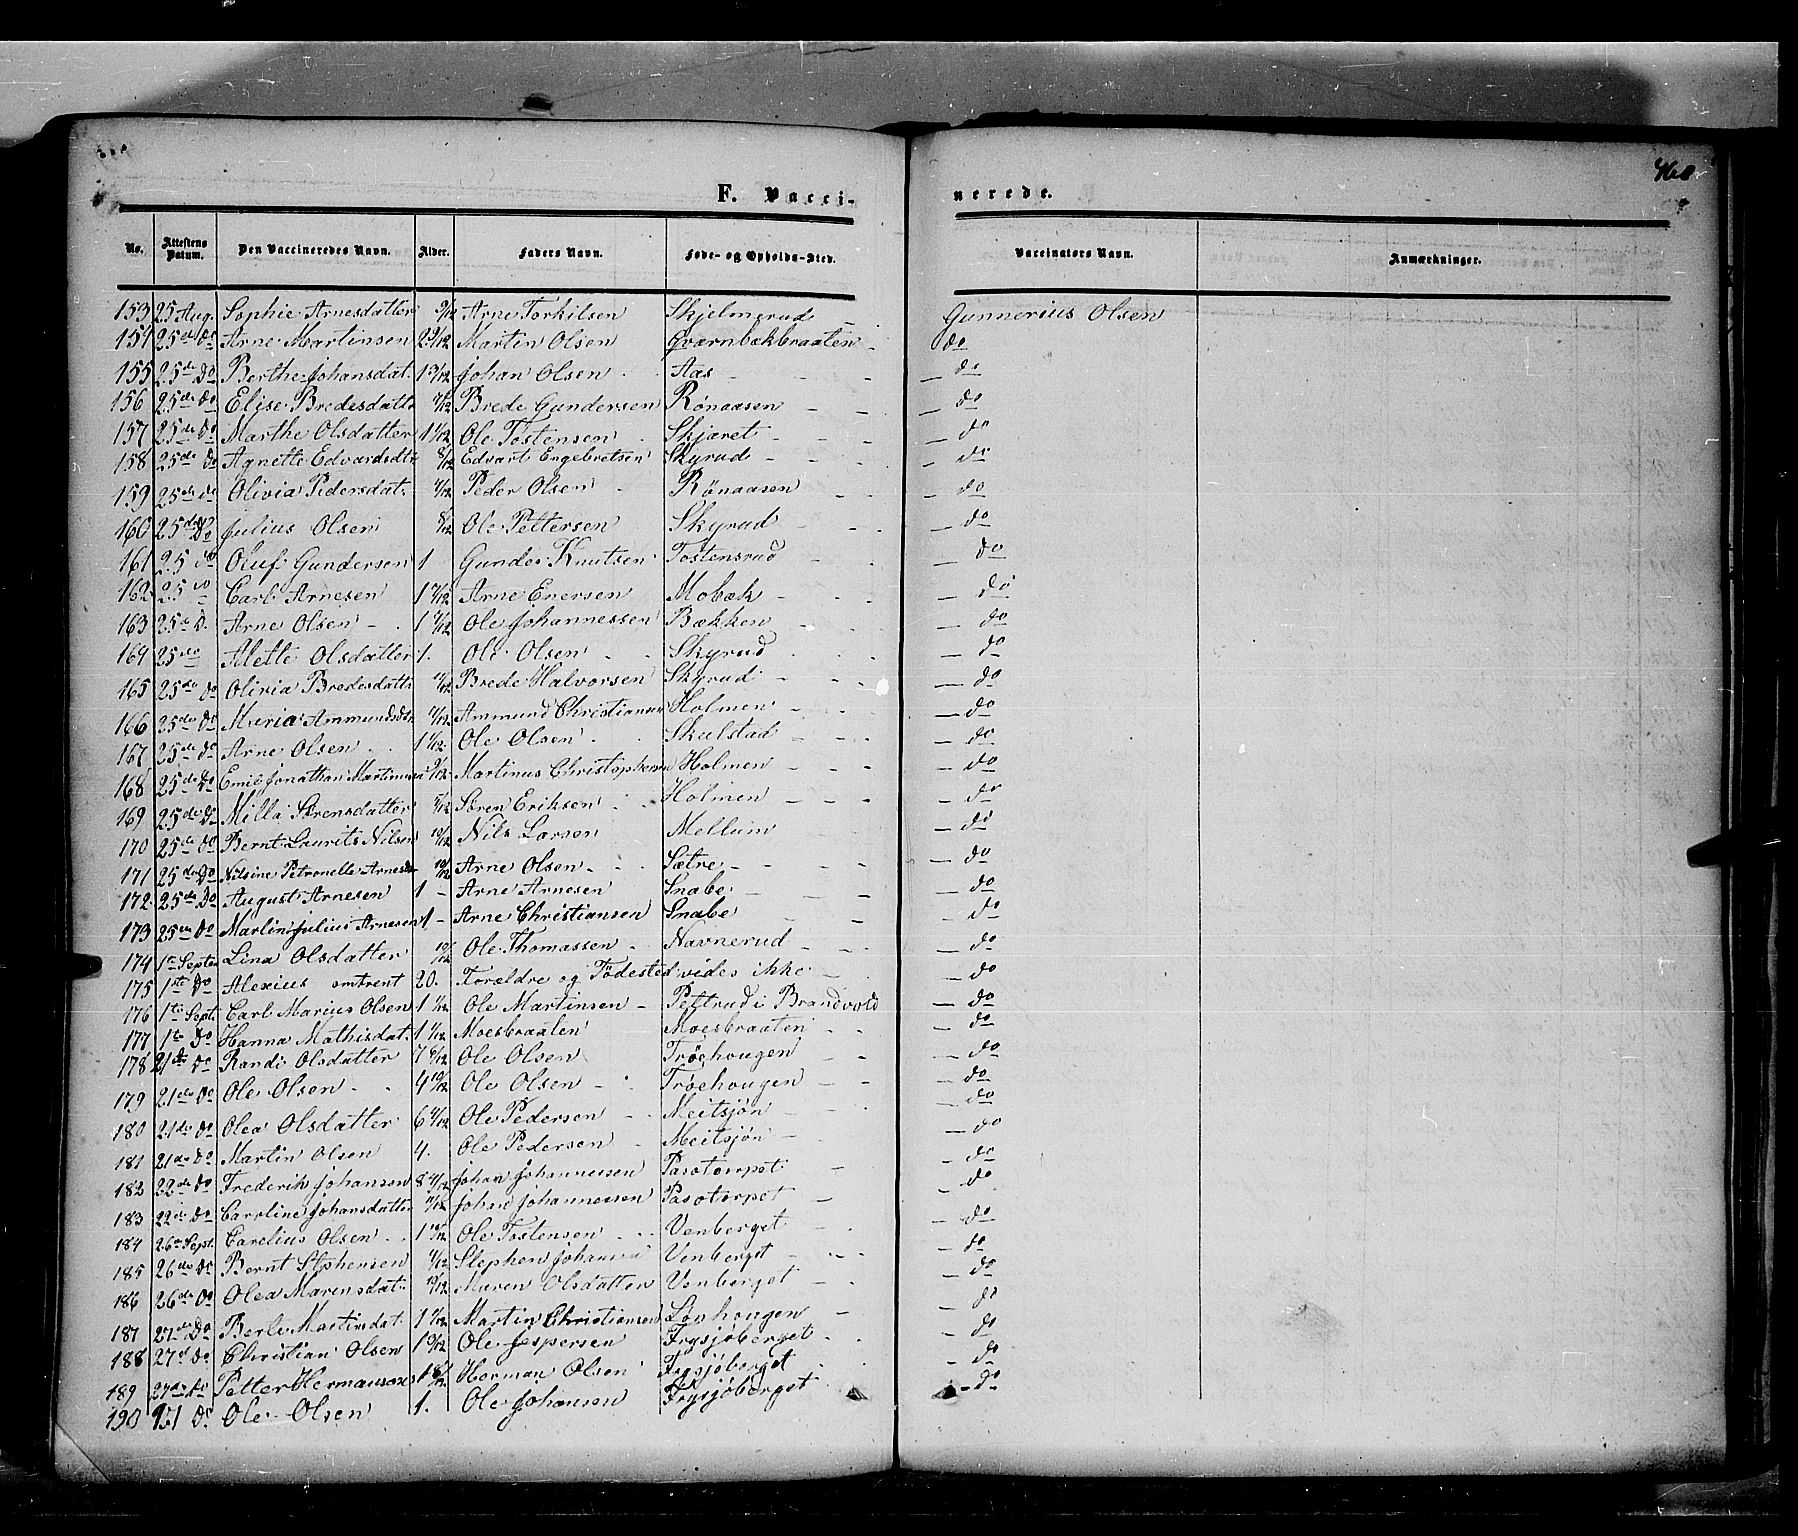 468
F. Vacci-nerede.
No. Attestens Datum. Den Vaccineredes Navn. Alder. Faders Navn. Føde- og Opholds-Sted. Vaccinators Navn. Anmærkninger.
153 25 Aug. Sophie Arnesdatter 9/12 Arne Torkilsen Skjelmerud Gunnerius Olsen
154 25 do Arne Martinsen Martin Olsen Qværnbækbraaten do
155 25de do Berthe Johansdat. Johan Olsen Aas do
156 25de do Elise Bredesdattr Brede Gundersen Rønaasen do
157 25de do Marthe Olsdatter Ole Tostensen Skjæret do
158 25de do Agnette Edvardsdtr 8/12 Edvart Engebretsen Skyrud do
159 25de do Olivia Pedersdat. Peder Olsen Rønaasen do
160 25de do Julius Olsen 8/12 Ole Pettersen Skyrud do
161 25 do Oluf Gundersen 1 Gunder Knutsen Tostensrud do
162 25 do Carl Arnesen Arne Enersen Mobæk do
163 25 d. Arne Olsen Ole Johannessen Bækken do
164 25 do Alette Olsdatter 1. Ole Olsen Skyrud do
165 25de do Olivia Bredesdattr Brede Halvorsen Skyrud do
166 25de do Maria Ammundsdtr Ammund Christiansen Holmen do
167 25de do Arne Olsen Ole Olsen Skulstad do
168 25de do Emil Jonathan Martinusen 9/12 Martinus Christophersen Holmen do
169 25de do Milla Sørensdatter Søren Eriksen Holmen do
170 25de do Bernt Laurits Nilsen 10/12 Nils Larsen Mellum do
171 25de do Nilsine Petronelle Arnesdtr 10/12 Arne Olsen Sætre do
172 25de do August Arnesen 1 Arne Arnesen Snabe do
173 25 do Martin Julius Arnesen 1 Arne Christiansen Snabe do
174 1te Septer Lina Olsdatter 10/12 Ole Thomassen Navnerud do
175 1ste do Alexius omtrent 20. Forældre og Födested vides ikke do
176 1te Sept. Carl Marius Olsen Ole Martinsen Pettrud i Brandvold do
177 1te do Hanna Mathisdat. Moesbraaten Moesbraaten do
178 21de do Randi Olsdatter Ole Olsen Trøehougen do
179 21de do Ole Olsen 4 10/12 Ole Olsen Trøehougen do
180 21de do Olea Olsdatter Ole Pedersen Meitsjøn do
181 21de do Martin Olsen 4. Ole Pedersen Meitsjøn do
182 22de do Frederik Johansen Johan Johannesen Pasotorpet do
183 22de do Caroline Johansdatter Johan Johannesen Pasotorpet do
184 26 Sept. Carelius Olsen Ole Tostensen Venberget do
185 26de do Bernt Stephensen Stephen Johansen Venberget do
186 26de do Olea Marensdat. Maren Olsdatter Venberget do
187 27de do Martinsdat. Martin Christiansen Løvhougen do
188 27 do Christian Olsen Ole Jespersen Frysjøberget do
189 27de do Petter Hermansen Herman Olsen Frysjøberget do
190 do Ole Olsen 1. Ole Johansen Frysjøberget do